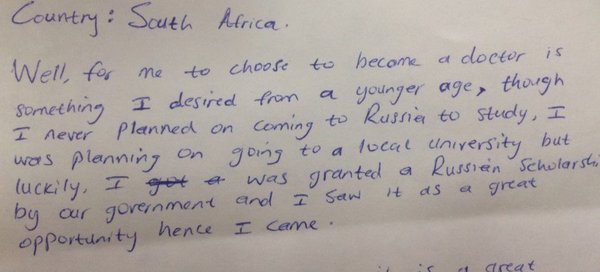 Country: South Africa.
Well, for me to choose to become a doctor is
something I desired from a younger age, though
I never planned on coming to Russia to study, I
was planning on going to a local university but
luckily, I got a was granted a Russian Scholarshi
by our government and I saw it as a great
opportunity hence I came.
it is a great